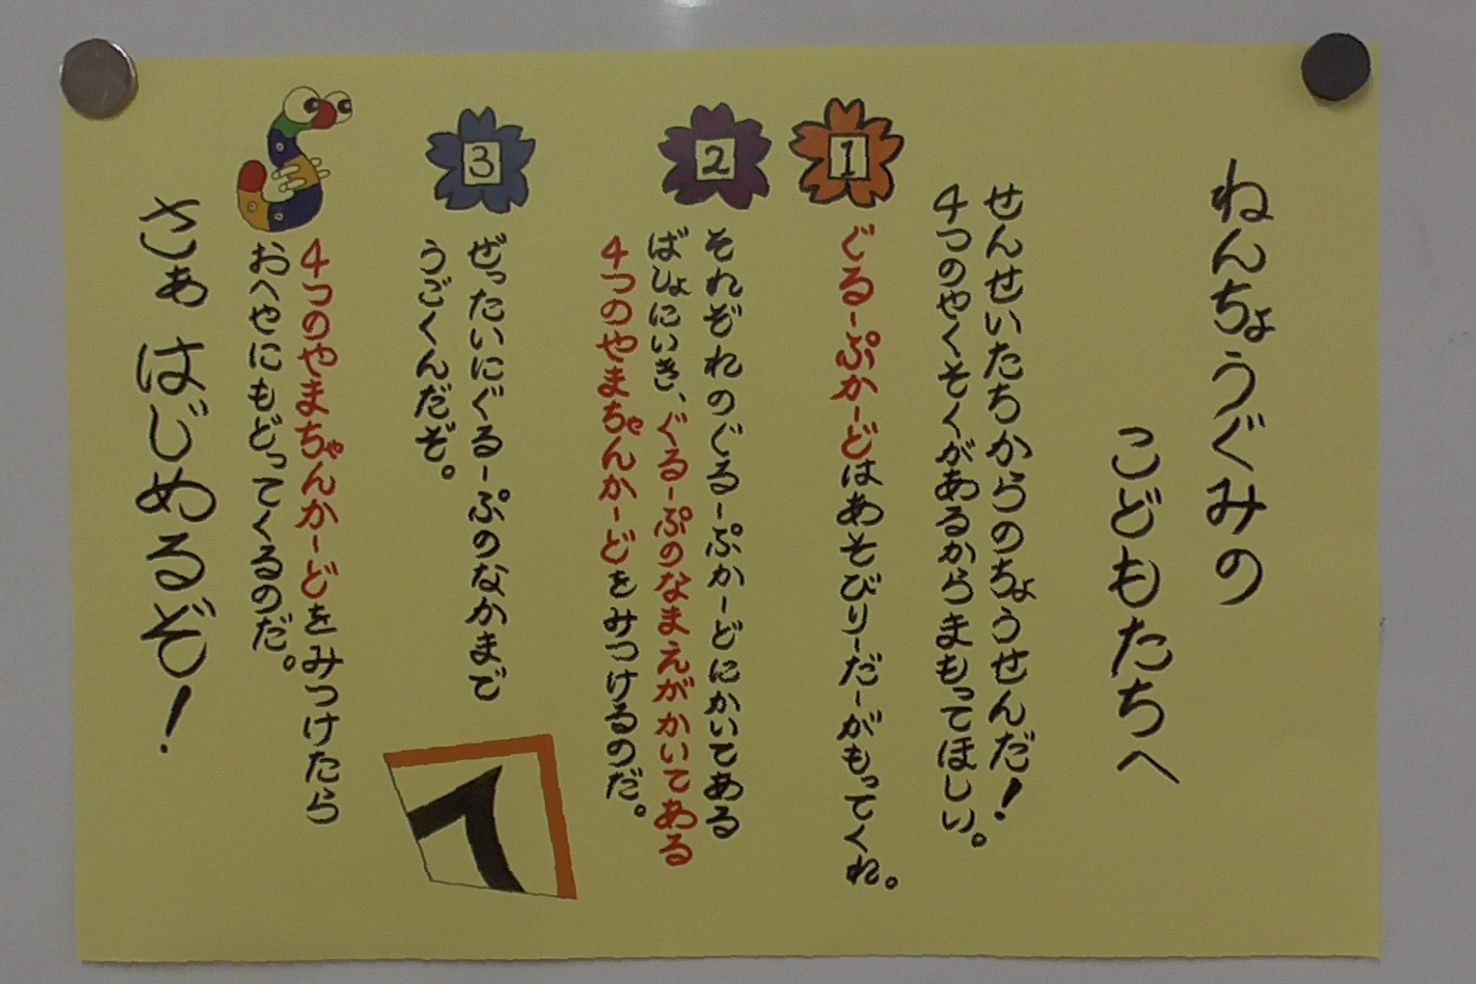 ねんちょうぐみの
こどもたちへ
せんせいたちからのちょうせんだ！
4つのやくそくがあるからまもってほしい。
1
ぐるーぷかーどはあそびりーだーがもってくれ。
2
それぞれのぐるーぷかーどにかいてある
ばしょにいき、ぐるーぷのなまえがかいてある
4つのやまちゃんかーどをみつけるのだ。
3
ぜったいにぐるーぷのなかまで
うごくんだぞ。
4つのやまちゃんかーどをみつけたら
おへやにもどってくるのだ。
さぁ はじめるぞ！